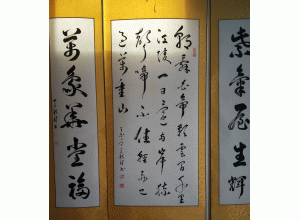 紫氣屋生輝
朝辞白帝彩雲間千里
江陵一日還兩岸猿
聲啼不住輕舟已
過萬重山
萬象華堂福